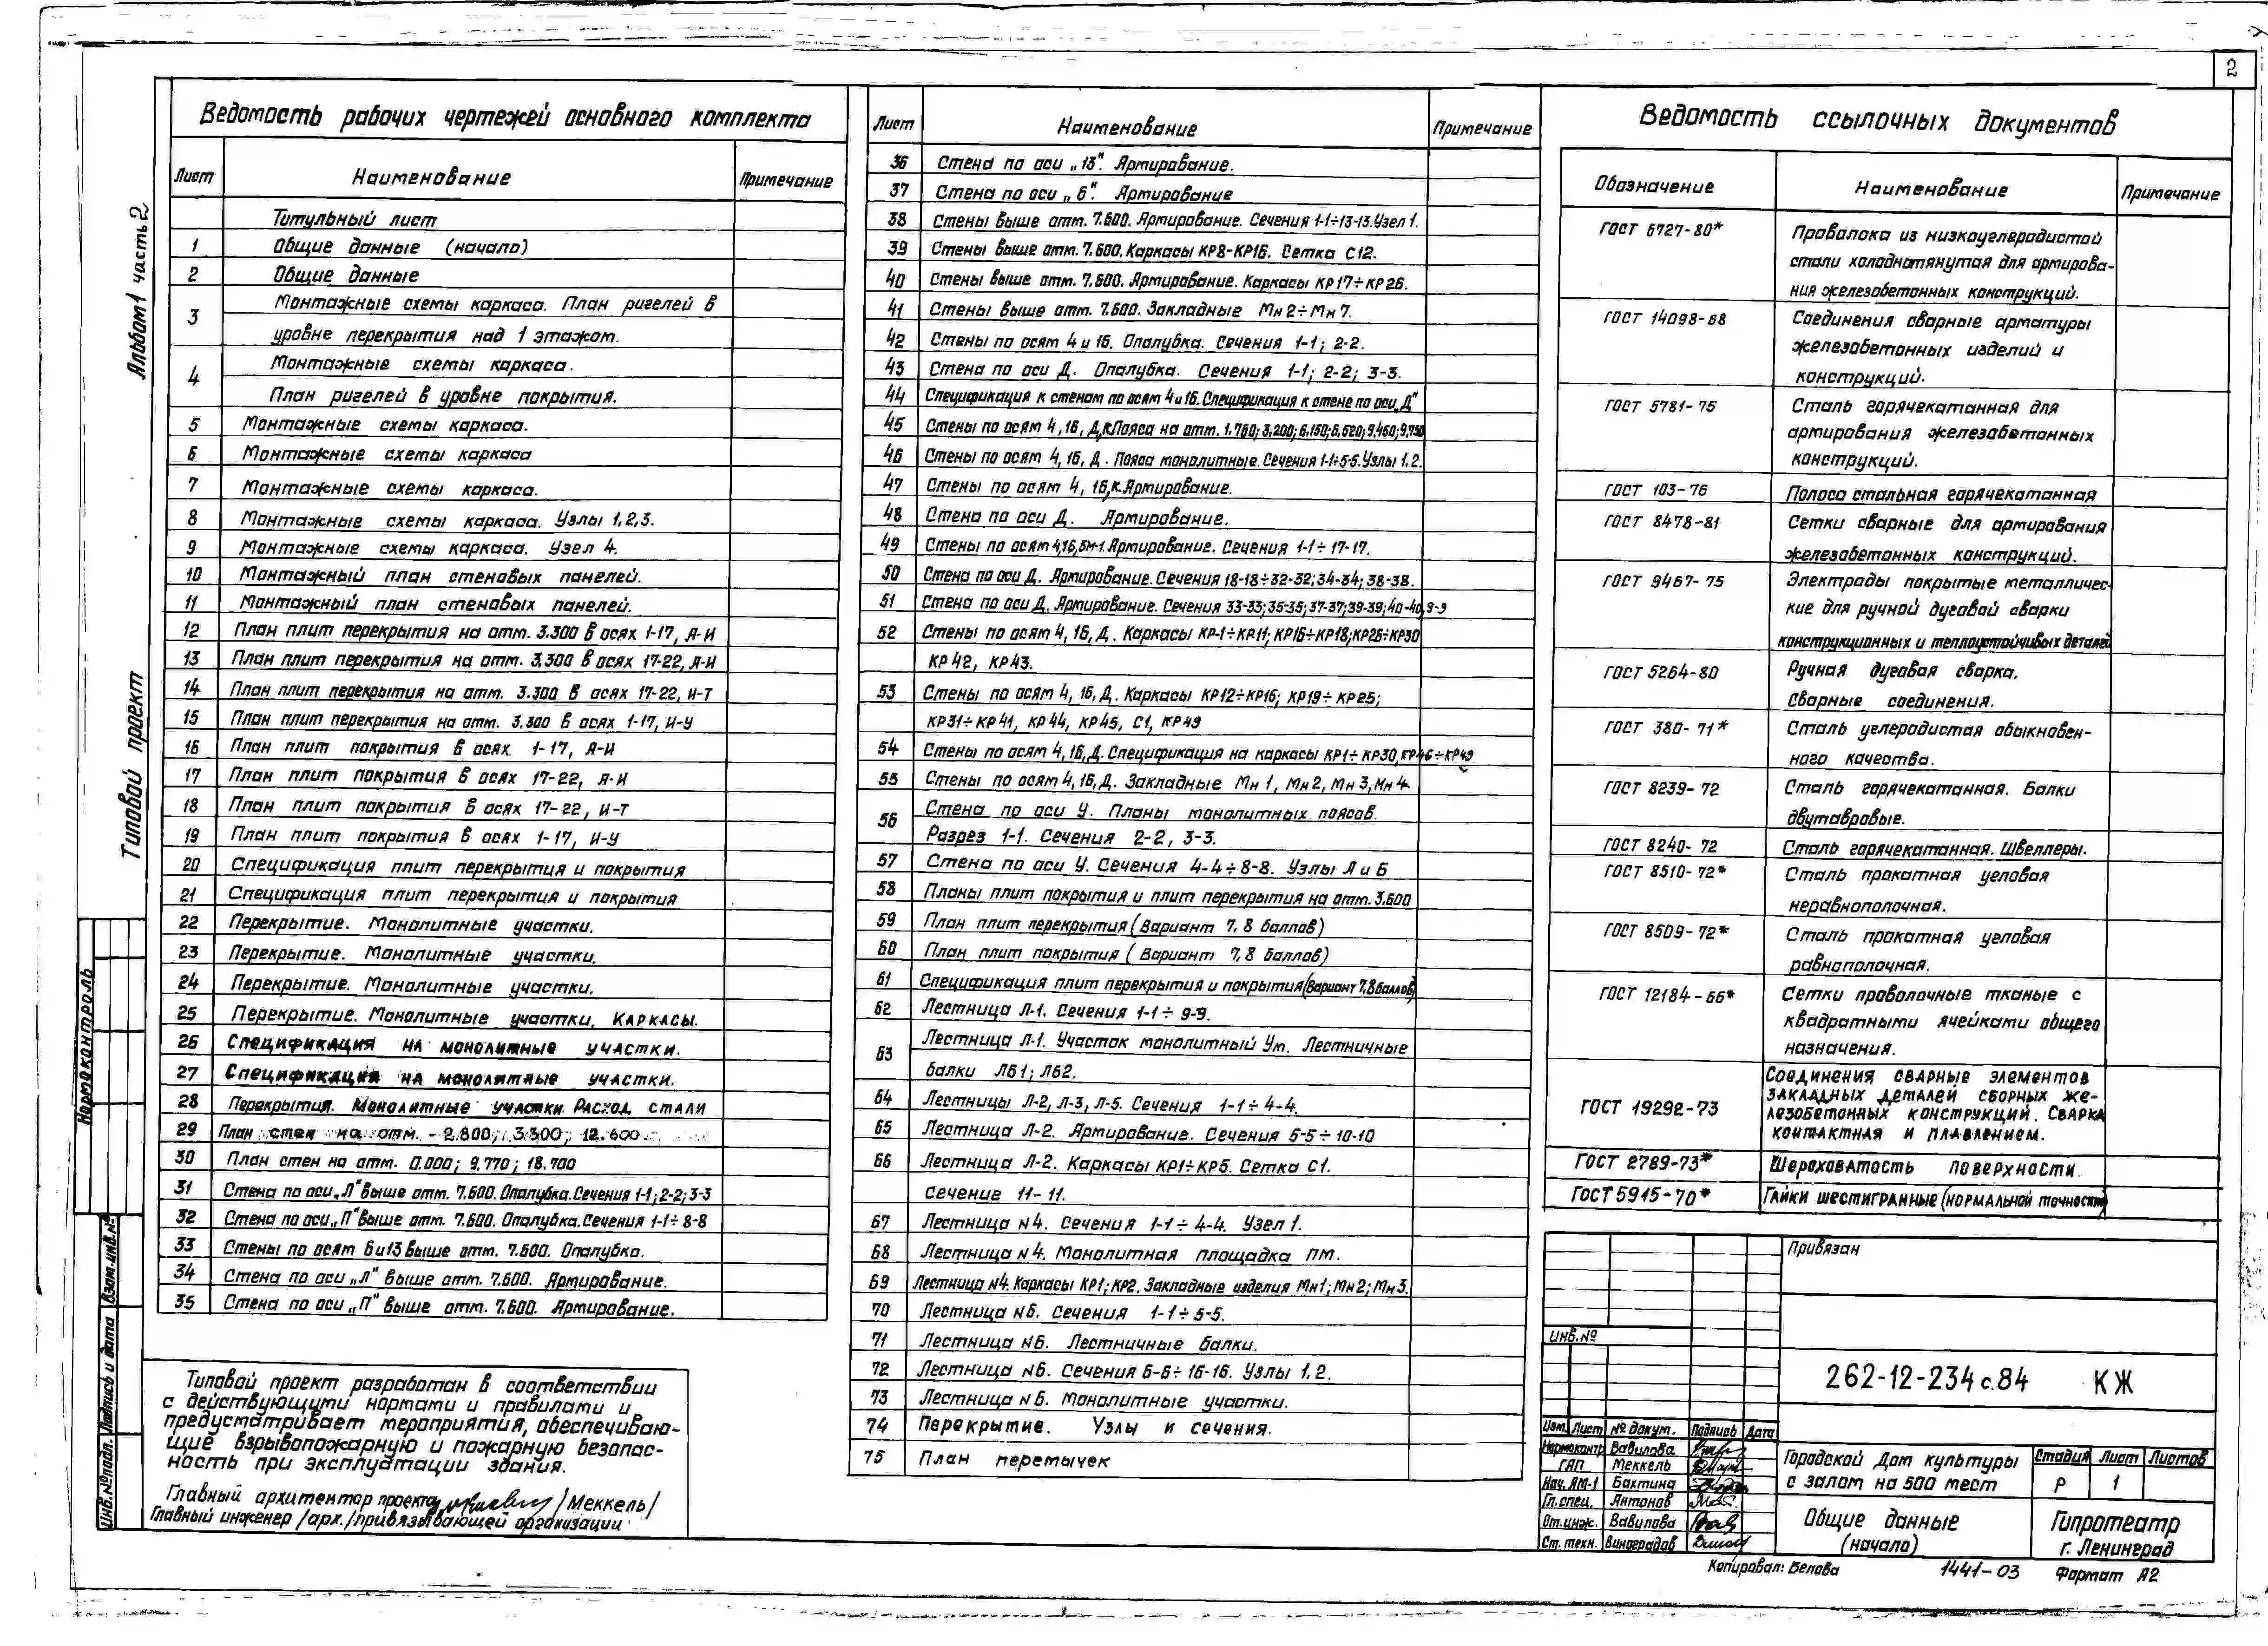 2
Альбом 1 часть 2
Типовой проект
Нормоконтроль
Взам.инв.№
Подпись и дата
Инв.№подл.
Ведомость рабочих чертежей основного комплекта
Лист Наименование Примечание
Титульный лист
1 Общие данные (начало)
2 Общие данные
3 Монтажные схемы каркаса. План ригелей в
уровне перекрытия над 1 этажом.
4 Монтажные схемы каркаса.
План ригелей в уровне покрытия.
5 Монтажные схемы каркаса.
6 Монтажные схемы каркаса
7 Монтажные схемы каркаса.
8 Монтажные схемы каркаса. Узлы 1,2,3.
9 Монтажные схемы каркаса. Узел 4.
10 Монтажный план стеновых панелей.
11 Монтажный план стеновых панелей.
12 План плит перекрытия на отм. 3.300 в осях 1-17, А-И
13 План плит перекрытия на отм. 3.300 в осях 17-22, А-И
14 План плит перекрытия на отм. 3.300 в осях 17-22, И-Т
15 План плит перекрытия на отм. 3.300 в осях 1-17, И-У
16 План плит покрытия в осях 1-17, А-И
17 План плит покрытия в осях 17-22, А-И
18 План плит покрытия в осях 17-22, И-Т
19 План плит покрытия в осях 1-17, И-У
20 Спецификация плит перекрытия и покрытия
21 Спецификация плит перекрытия и покрытия
22 Перекрытие. Монолитные участки.
23 Перекрытие. Монолитные участки.
24 Перекрытие. Монолитные участки.
25 Перекрытие. Монолитные участки. Каркасы.
26 Спецификация на монолитные участки.
27 Спецификация на монолитные участки.
28 Перекрытия. Монолитные участки. Расход стали
29 План стен на отм. -2.800; 3.300; 12.600
30 План стен на отм. 0.000; 9.770; 18.700
31 Стена по оси „Л" выше отм. 7.600. Опалубка. Сечения 1-1; 2-2; 3-3
32 Стена по оси „П" выше отм. 7.600. Опалубка. Сечения 1-1÷8-8
33 Стены по осям 6 и 13 выше отм. 7.600. Опалубка.
34 Стена по оси „Л" выше отм. 7.600. Армирование.
35 Стена по оси „П" выше отм. 7.600. Армирование.
Типовой проект разработан в соответствии
с действующими нормами и правилами и
предусматривает мероприятия, обеспечиваю-
щие взрывопожарную и пожарную безопас-
ность при эксплуатации здания.
Главный архитектор проекта /Меккель/
Главный инженер /арх./ привязывающей организации
Лист Наименование Примечание
36 Стена по оси „13". Армирование.
37 Стена по оси „6". Армирование
38 Стены выше отм. 7.600. Армирование. Сечения 1-1÷13-13. Узел 1.
39 Стены выше отм. 7.600. Каркасы КР8-КР16. Сетка С12.
40 Стены выше отм. 7.600. Армирование. Каркасы КР17÷КР26.
41 Стены выше отм. 7.600. Закладные Мн2÷Мн7.
42 Стены по осям 4 и 16. Опалубка. Сечения 1-1; 2-2.
43 Стена по оси Д. Опалубка. Сечения 1-1; 2-2; 3-3.
44 Спецификация к стенам по осям 4 и 16. Спецификация к стене по оси „Д"
45 Стены по осям 4, 16, Д,К.Пояса на отм. 1.760; 3.200; 6.150; 6.520; 9.450; 9.750
46 Стены по осям 4, 16, Д. Пояса монолитные. Сечения 1-1÷5-5. Узлы 1,2.
47 Стены по осям 4, 16,К.Армирование.
48 Стена по оси Д. Армирование.
49 Стены по осям 4,16,Бм-1. Армирование. Сечения 1-1÷17-17.
50 Стена по оси Д. Армирование. Сечения 18-18÷32-32; 34-34; 38-38.
51 Стена по оси Д. Армирование. Сечения 33-33; 35-35; 37-37; 39-39; 40-40, 9-9
52 Стены по осям 4, 16, Д. Каркасы КР-1÷КР11; КР16÷КР18; КР26÷КР30
КР42, КР43.
53 Стены по осям 4, 16, Д. Каркасы КР12÷КР16; КР19÷КР25;
КР31÷КР41, КР44, КР45, С1, КР49
54 Стены по осям 4,16,Д. Спецификация на каркасы КР1÷КР30, КР46÷КР49
55 Стены по осям 4,16,Д. Закладные Мн1, Мн2, Мн3, Мн4.
56 Стена по оси У. Планы монолитных поясов.
Разрез 1-1. Сечения 2-2, 3-3.
57 Стена по оси У. Сечения 4-4÷8-8. Узлы А и Б
58 Планы плит покрытия и плит перекрытия на отм. 3.600
59 План плит перекрытия (Вариант 7, 8 баллов)
60 План плит покрытия (Вариант 7, 8 баллов)
61 Спецификация плит перекрытия и покрытия (Вариант 7,8 баллов)
62 Лестница Л-1. Сечения 1-1÷9-9.
63 Лестница Л-1. Участок монолитный Ум. Лестничные
балки ЛБ1; ЛБ2.
64 Лестницы Л-2, Л-3, Л-5. Сечения 1-1÷4-4.
65 Лестница Л-2. Армирование. Сечения 5-5÷10-10
66 Лестница Л-2. Каркасы КР1÷КР5. Сетка С1.
Сечение 11-11.
67 Лестница №4. Сечения 1-1÷4-4. Узел 1.
68 Лестница №4. Монолитная площадка ПМ.
69 Лестница №4. Каркасы КР1; КР2. Закладные изделия Мн1; Мн2; Мн3.
70 Лестница №6. Сечения 1-1÷5-5.
71 Лестница №6. Лестничные балки.
72 Лестница №6. Сечения 6-6÷16-16. Узлы 1,2.
73 Лестница №6. Монолитные участки.
74 Перекрытие. Узлы и сечения.
75 План перемычек
Ведомость ссылочных документов
Обозначение Наименование Примечание
ГОСТ 6727-80* Проволока из низкоуглеродистой
стали холоднотянутая для армирова-
ния железобетонных конструкций.
ГОСТ 14098-68 Соединения сварные арматуры
железобетонных изделий и
конструкций.
ГОСТ 5781-75 Сталь горячекатанная для
армирования железобетонных
конструкций.
ГОСТ 103-76 Полоса стальная горячекатанная
ГОСТ 8478-81 Сетки сварные для армирования
железобетонных конструкций.
ГОСТ 9467-75 Электроды покрытые металличес-
кие для ручной дуговой сварки
конструкционных и теплоустойчивых деталей
ГОСТ 5264-80 Ручная дуговая сварка.
Сварные соединения.
ГОСТ 380-71* Сталь углеродистая обыкновен-
ного качества.
ГОСТ 8239-72 Сталь горячекатанная. Балки
двутавровые.
ГОСТ 8240-72 Сталь горячекатанная. Швеллеры.
ГОСТ 8510-72* Сталь прокатная угловая
неравнополочная.
ГОСТ 8509-72* Сталь прокатная угловая
равнополочная.
ГОСТ 12184-66* Сетки проволочные тканые с
квадратными ячейками общего
назначения.
ГОСТ 19292-73 Соединения сварные элементов
закладных деталей сборных же-
лезобетонных конструкций. Сварка
контактная и плавлением.
ГОСТ 2789-73* Шероховатость поверхности.
ГОСТ 5915-70* Гайки шестигранные (нормальной точности)
Привязан
Инв.№
262-12-234с.84 КЖ
Изм. Лист № докум. Подпись Дата
Нормоконтр Вавилова
ГАП Меккель
Нач. АМ-1 Бахтина
Гл.спец. Антонов
От.инж. Вавилова
Ст. техн. Виноградов
Городской Дом культуры
с залом на 500 мест
Стадия Лист Листов
Р 1
Общие данные
(начало)
Гипротеатр
г. Ленинград
Копировал: Белова 1441-03 Формат А2